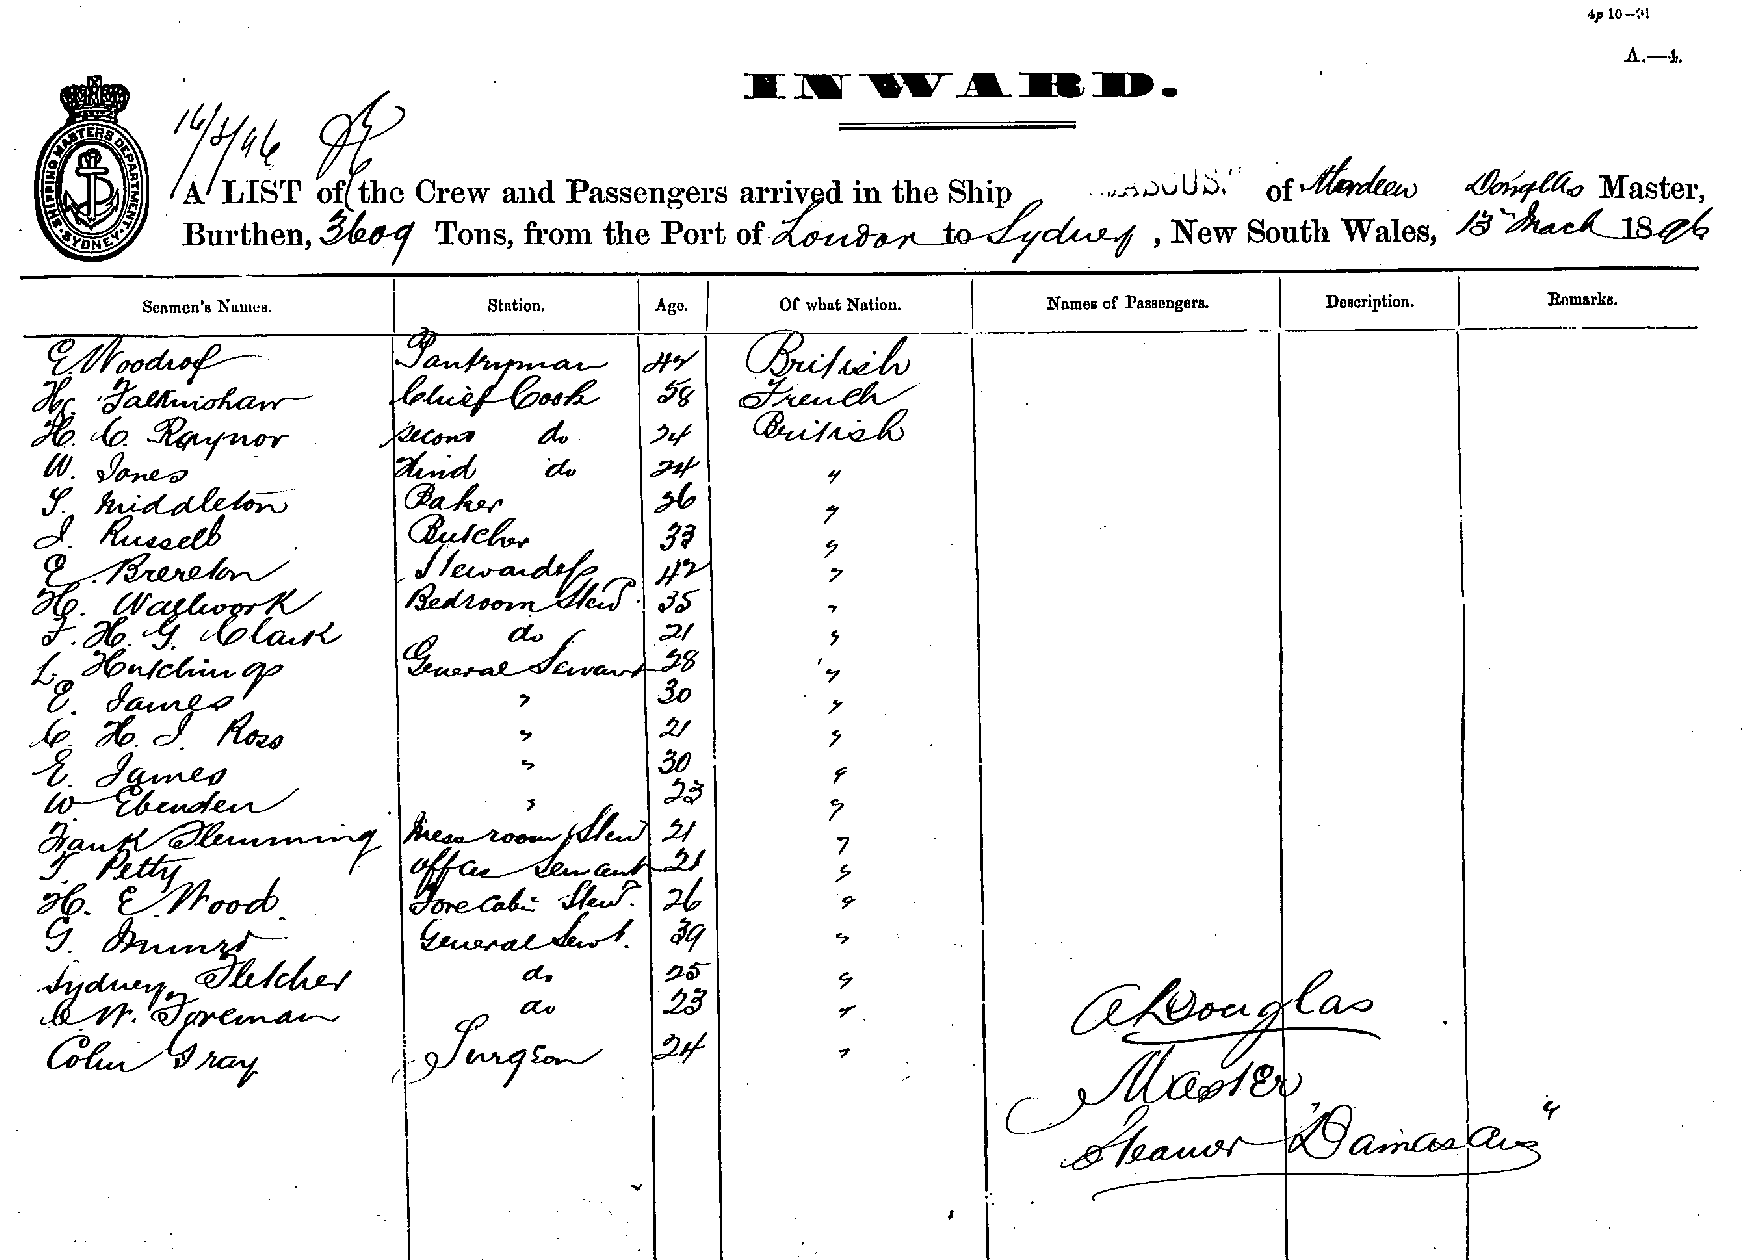 4p 10—91
A.—4.
INWARD.
SHIPPING MASTERS DEPARTMENT SYDNEY
16/3/96
A LIST of the Crew and Passengers arrived in the Ship DAMASCUS of Aberdeen Douglas Master,
Burthen, 3609 Tons, from the Port of London to Sydney, New South Wales, 13th March 1896
Seamen's Names. Station. Age. Of what Nation. Names of Passengers. Description. Remarks.
E Woodrof Pantryman 42 British
H. Falkinshaw Chief Cook 58 French
H. C. Raynor Second do 24 British
W. Jones Third do 24 "
S. Middleton Baker 36 "
J. Russell Butcher 33 "
E. Brereton Stewardess 42 "
H. Wallwork Bedroom Stewd 35 "
F. H. G. Clark do 21 "
L. Hutchings General Servant 28 "
E. James " 30 "
C. H. J. Ross " 21 "
E. James " 30 "
W Ebenden " 23 "
Frank Flemming Messroom Stewd 21 "
T. Petty Officers Servant 21 "
H. E. Wood Fore Cabin Stewd. 26 "
G. Munro General Servt. 39 "
Sydney Fletcher do 25 "
C W. Foreman do 23 "
Colin Gray Surgeon 24 "
A Douglas
Master
Steamer "Damascus"